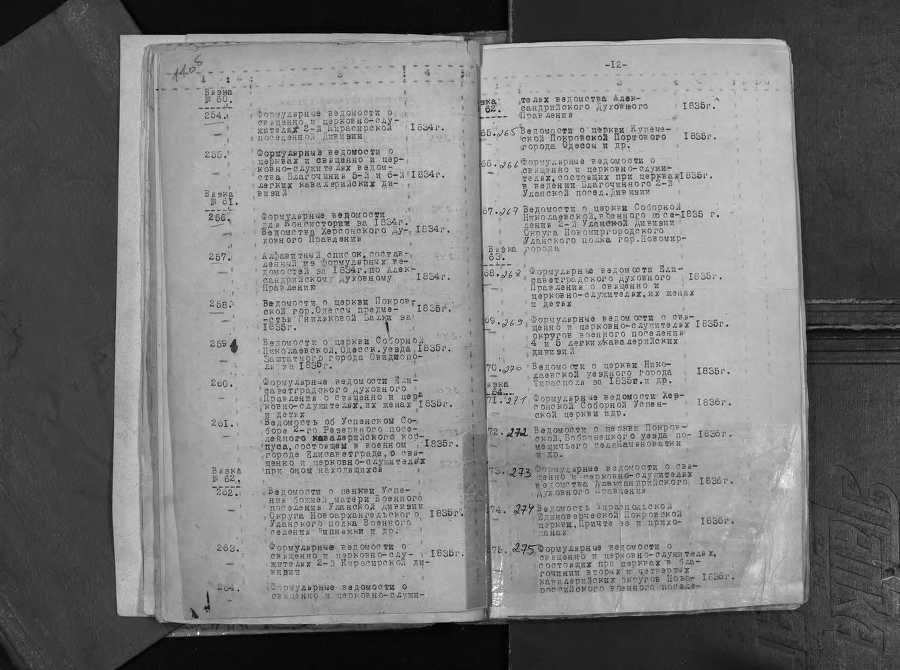 1108
1 2 3 4
Вязка
№ 60.
254. Формулярные ведомости о
священно и церковно-слу-
жителях 2-й Кирасирской 1834г.
поселенной Дивизии
255. Формулярные ведомости о
церквах и священно и цер-
ковно-служителях ведом-
ства Благочиния 5-й и 6-й 1834г.
легких кавалерийских ди-
визий
Вязка
№ 61.
256. Формулярные ведомости
для Консистории за 1834г.
Ведомства Херсонского Ду- 1834г.
ховного Правления
257. Алфавитный список, состав-
ленный из Формулярных ве-
домостей за 1834г. по Алек-
сандрийскому Духовному 1834г.
Правлению
258. Ведомости о церкви Покров-
ской гор.Одессы предме- 1835г.
стья Гниляковой Балки за
1835г.
259. Ведомости о церкви Соборной
Николаевской, Одесск.уезда 1835г.
Заштатного города Овидиопо-
ля за 1835г.
260. Формулярные ведомости Ели-
саветградского духовного
Правления о священно и цер-
ковно-служителях, их женах 1835г.
и детях
261. Ведомость об Успенском Со-
боре 2-го Резервного посе-
ленного кавалерийского кор-
пуса, состоящем в военном 1835г.
городе Елисаветграде, о свя-
щенно и церковно-служителях
при оном находящихся
Вязка
№ 62.
262. Ведомости о церкви Успе-
ния божией матери Военного
поселения Уланской дивизии
Округа Новоархангельского 1835г.
Уланского полка Военного
селения и др.
263. Формулярные ведомости о
священно и церковно-слу- 1835г.
жителях 2-й Кирасирской ди-
визии
264. Формулярные ведомости о
священно и церковно-служи-
-12-
62. телях ведомства Алек-
сандрийского Духовного 1835г.
Правления
265 Ведомости о церкви Купече-
ской Покровской Портового 1835г.
города Одессы и др.
266 Формулярные ведомости о
священно и церковно-служи-
телях, состоящих при церквах 1835г.
в ведении Благочинного 2-й
Уланской посел.Дивизии
267 Ведомости о церкви Соборной
Николаевской, военного посе- 1835 г.
ления 2-й Уланской Дивизии
Округа Новомиргородского
Уланского полка гор.Новомир-
города
Вязка
63.
268 Формулярные ведомости Ели-
саветградского духовного 1835г.
Правления о священно и
церковно-служителях, их женах
и детях
269 Формулярные ведомости о свя-
щенно и церковно-служителях 1835г.
округов военного поселения
4 и 5 легких кавалерийских
дивизий
270 Ведомости о церкви Нико-
лаевской уездного города 1835г.
Тирасполя за 1835г.и др.
64.
271 Формулярные ведомости Хер-
сонской Соборной Успен- 1836г.
ской церкви идр.
272 Ведомости о церкви Покров-
ской, Бобринецкого уезда по- 1836г.
мещичьего села
и др.
273 Формулярные ведомости о свя-
щенно и церковно-служителях
ведомства Александрийского 1836г.
духовного правления
274 Ведомость Тираспольской
Единоверческой Покровской
церкви, Причте ее и прихо-
жанах
275 Формулярные ведомости о
священно и церковно-служителях,
состоящих при церквах в бла-
гочинии вторых и четвертых
кавалерийских округов Ново- 1836г.
российского военного поселе-